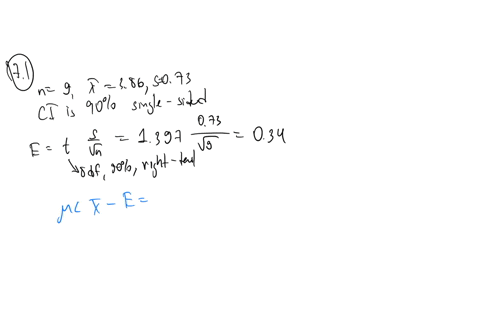 17.1
n= 9, x̄ = 3.86, s=0.73
CI is 90% single-sided
E = t s/√n = 1.397 0.73/√9 = 0.34
↳8df, 90%, right-tail
μ< x̄ - E =